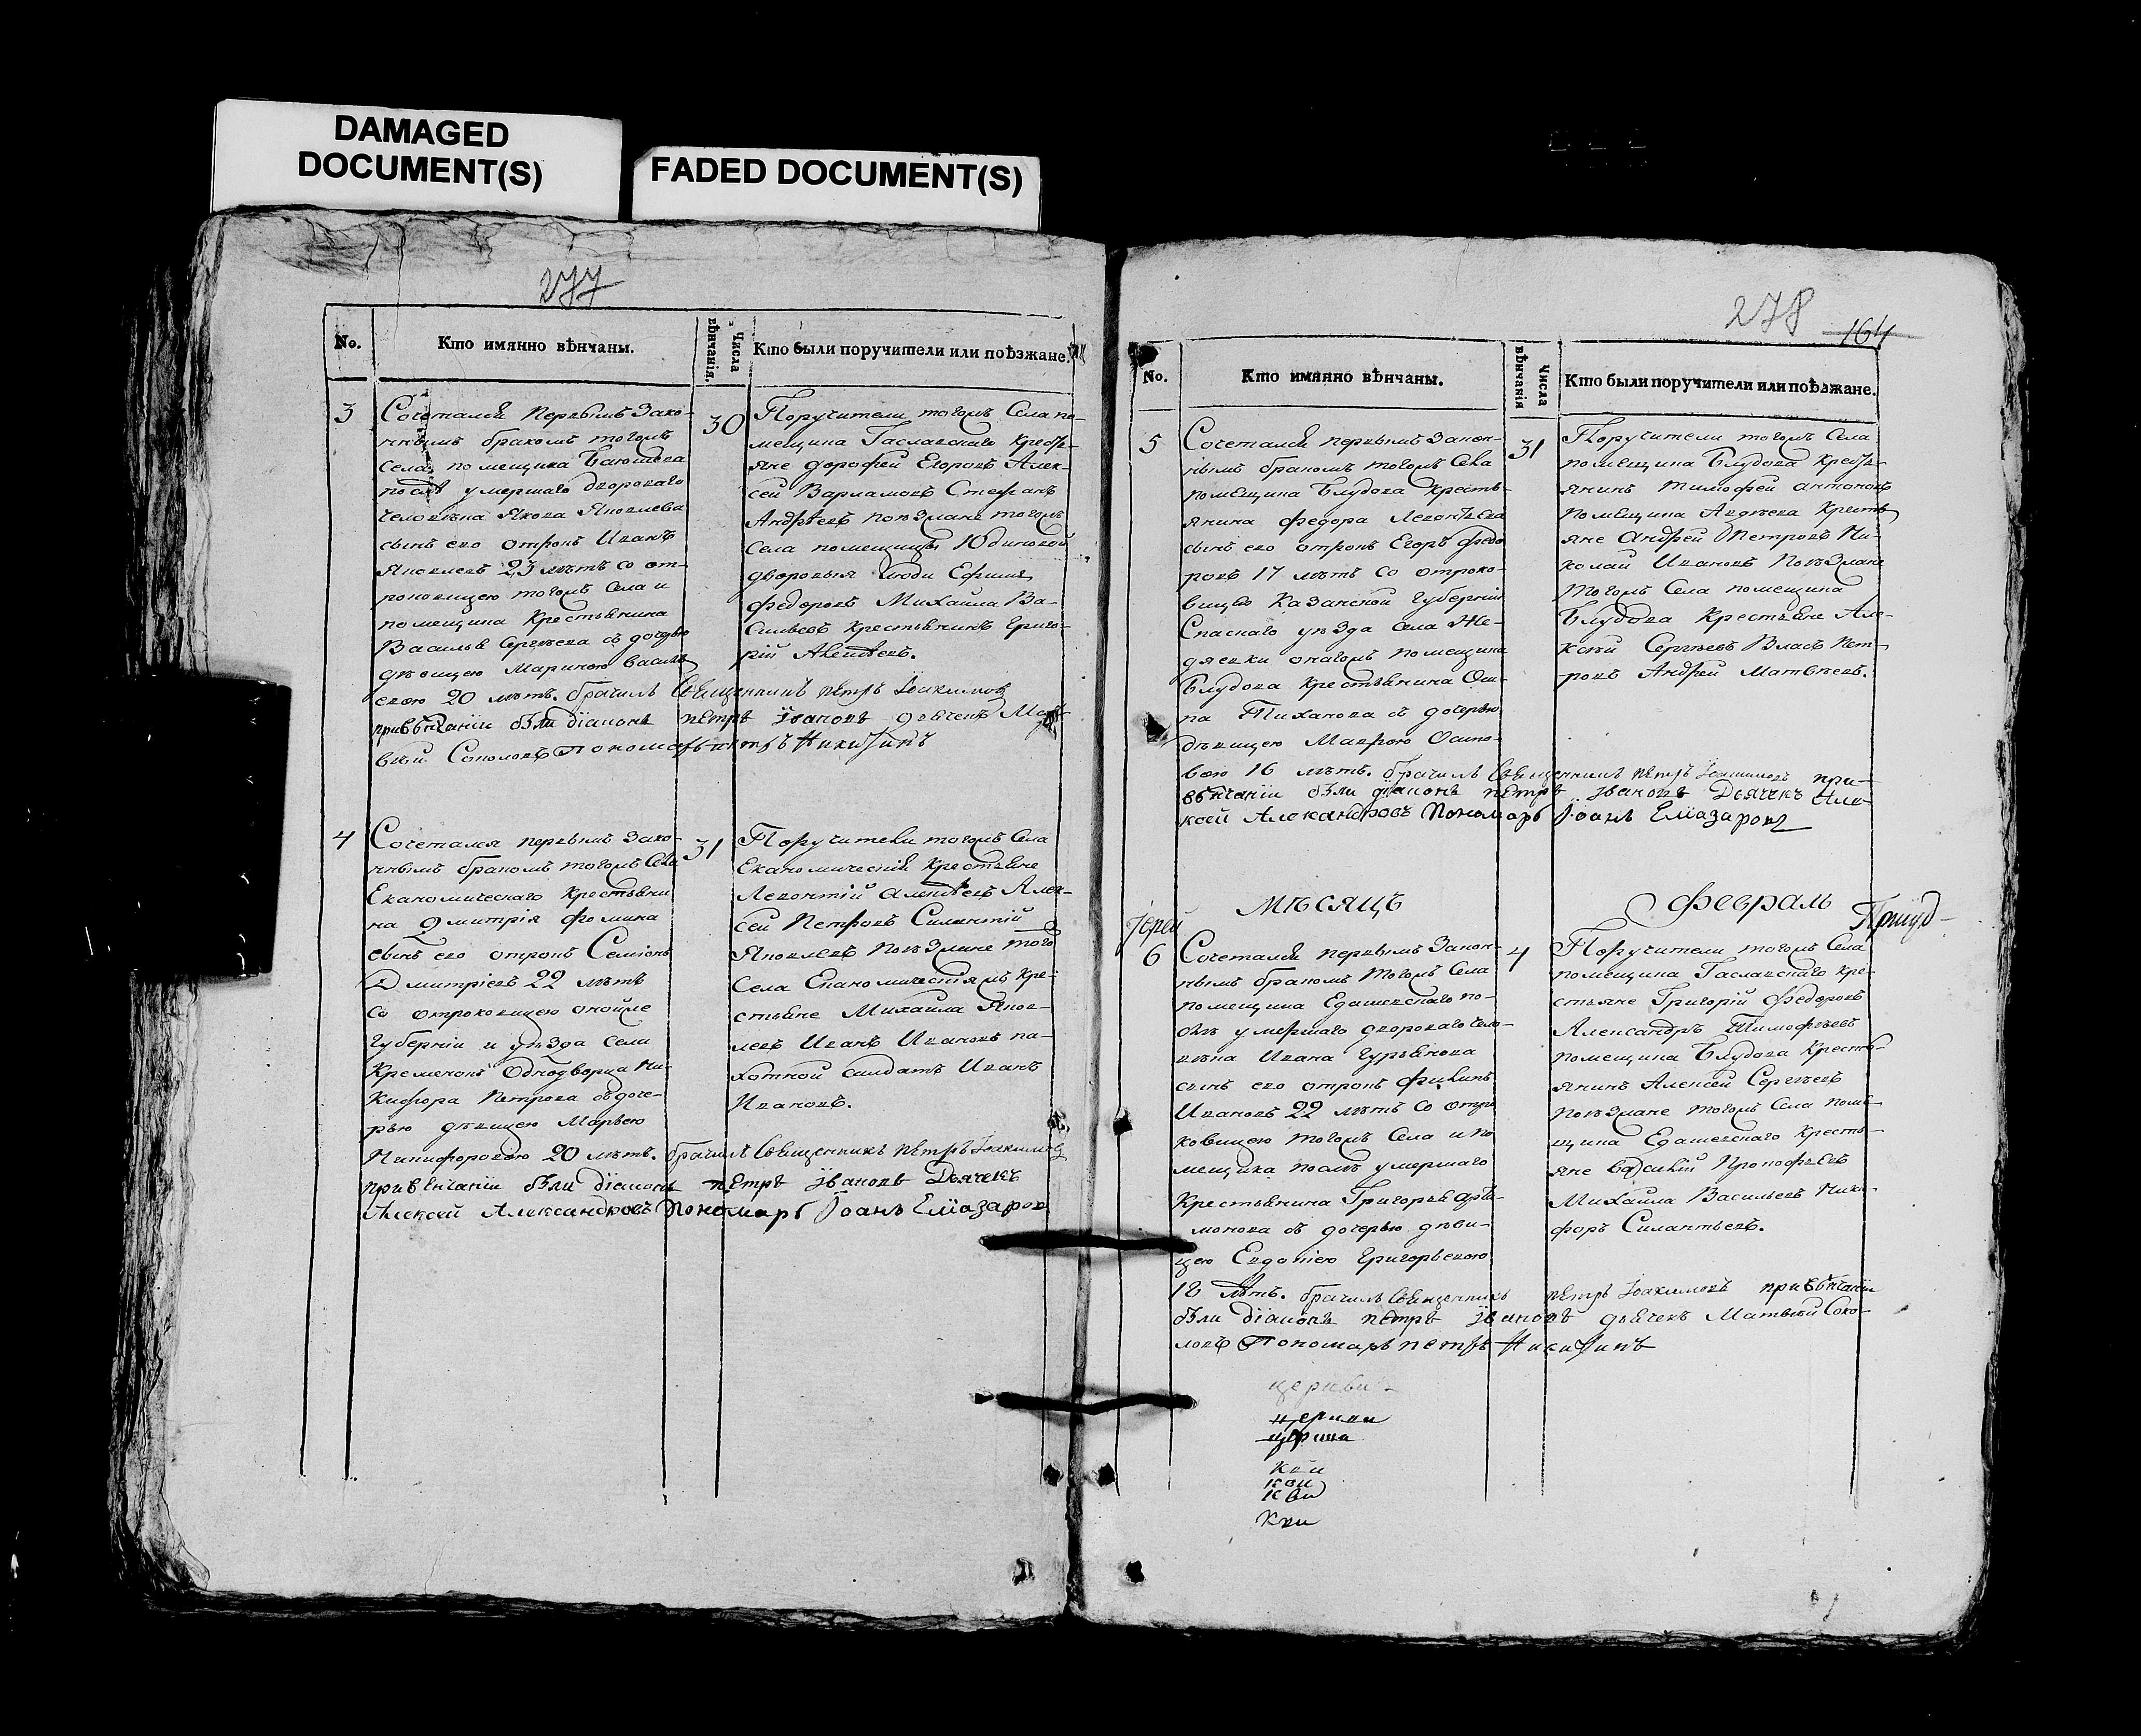 DAMAGED
DOCUMENT(S)
FADED DOCUMENT(S)
277
No.
Кто имянно вѣнчаны.
Числа
вѣнчанія.
Кто были поручители или поѣзжане.
3
Сочетался первымъ зако-
ннымъ бракомъ тогожъ
села помещика
послѣ умершаго двороваго
человѣка Якова Яковлева
сынъ его отрокъ Иванъ
Яковлевъ 23 лѣтъ со от-
роковицею тогожъ села и
помещика крестьянина
Василья Сергѣева съ дочерью
дѣвицею Мариною Василь
евою 20 лѣтъ. брачилъ Священникъ петръ Іоакимовъ
привѣнчаніи были діаконъ петръ Ивановъ дьячекъ Мат
вѣй Соколовъ пономарь петръ Никитинъ
30
Поручители тогожъ села по-
мещика Гаславскаго крестъ-
яне Дорофей Егоровъ Алек-
сей Варламовъ Стефанъ
Андрѣевъ поѣзжане тогожъ
села помещицы Юдиновой
дворовыя люди Ефимъ
Федоровъ Михаила Ва-
сильевъ крестьянинъ Григо-
рій Авдѣевъ.
4
Сочетался первымъ зако-
ннымъ бракомъ тогожъ села
Еканомическаго крестьяни
на Дмитрія Фомина
сынъ его отрокъ Семіонъ
Дмитріевъ 22 лѣтъ
со отроковицею онойже
губерніи и уѣзда села
Кременокъ Однодворца Ни-
кифора Петрова съ доче-
рью дѣвицею Марьею
Никифоровою 20 лѣтъ. брачилъ Священникъ петръ Іоакимовъ
привѣнчаніи были діаконъ петръ Ивановъ Дьячекъ
Алексей Александровъ Пономарь Іоанъ Еліазаровъ
31
Поручители тогожъ села
Екаономическія крестьяне
Левонтій Алексѣевъ Алек-
сей Петровъ Силантій
Яковлевъ поѣзжане того
села Екаономическіяжъ кре-
стьяне Михаила Яков-
левъ Иванъ Ивановъ па-
хотной салдатъ Иванъ
Ивановъ.
278
164
No.
Кто имянно вѣнчаны.
Числа
вѣнчанія
Кто были поручители или поѣзжане.
5
Сочетался первымъ закон-
нымъ бракомъ тогожъ села
помещика Блудова кресть-
янина Федора Левонтьева
сынъ его отрокъ Егоръ Федо
ровъ 17 лѣтъ со отроко-
вицею Казанской губерніи
Спаскаго уѣзда села Же-
дяевки онагожъ помещика
Блудова крестьянина Оси-
па Тиханова съ дочерью
дѣвицею Маврою Осипо-
вою 16 лѣтъ. брачилъ Священникъ петръ Іоакимовъ при-
вѣнчаніи были діаконъ петръ Ивановъ Дьячекъ Але-
ксей Александровъ Пономарь Іоанъ Еліазаровъ
31
Поручители тогожъ села
помещика Блудова кресть-
янинъ Тимофей Антоновъ
помещика Авдѣева кресть
яне Андрей Петровъ Ни-
колай Ивановъ поѣзжане
тогожъ села помещика
Блудова крестьяне Але-
ксѣй Сергѣевъ Власъ Пет-
ровъ Андрей Матвѣевъ.
Мѣсяцъ
Февраль
Іерей
6
Сочетался первымъ закон-
нымъ бракомъ тогожъ села
помещика Едашевскаго по-
слѣ умершаго двороваго чело-
вѣка Ивана Гурьянова
сынъ его отрокъ Филипъ
Ивановъ 22 лѣтъ со отро
ковицею тогожъ села и по
мещика послѣ умершаго
крестьянина Григорья Арте-
монова съ дочерью дѣви-
цею Евдокіею Григорьевою
18 лѣтъ. брачилъ Священникъ петръ Іоакимовъ привѣнчаніи
были діаконъ петръ Ивановъ дьячекъ Матвѣй Соко-
ловъ Пономарь петръ Никитинъ
4
Поручители тогожъ села
помещика Гаславскаго кре-
стьяне Григорій Федоровъ
Александръ Тимофѣевъ
помещика Блудова кресть-
янинъ Алексей Сергѣевъ
поѣзжане тогожъ села поме-
щика Едашевскаго кресть-
яне Василій Прокофьевъ
Михаила Васильевъ Ники-
форъ Силантьевъ.
церкви
церкви
кви
кви
кви